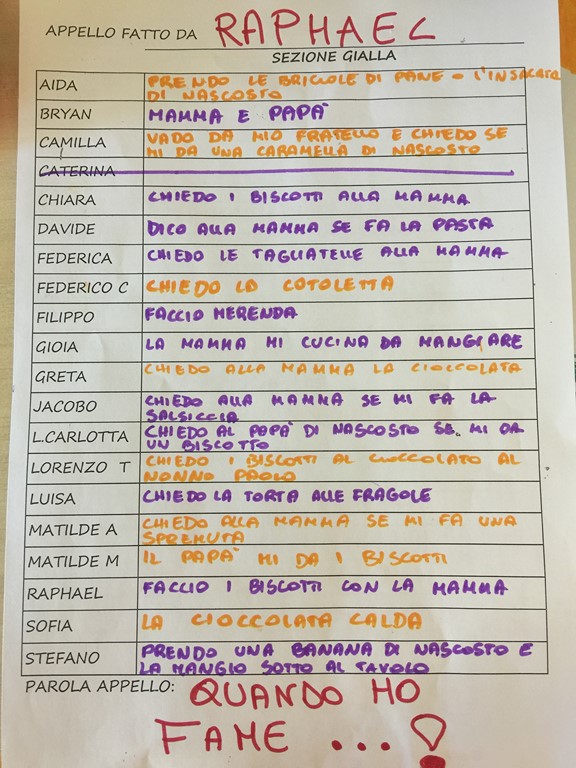 APPELLO FATTO DA RAPHAEL
SEZIONE GIALLA
AIDA PRENDO LE BRICIOLE DI PANE O L'INSALATA
DI NASCOSTO
BRYAN MAMMA E PAPA'
CAMILLA VADO DA MIO FRATELLO E CHIEDO SE
MI DA UNA CARAMELLA DI NASCOSTO
CATERINA
CHIARA CHIEDO I BISCOTTI ALLA MAMMA
DAVIDE DICO ALLA MAMMA SE FA LA PASTA
FEDERICA CHIEDO LE TAGLIATELLE ALLA MAMMA
FEDERICO C CHIEDO LA COTOLETTA
FILIPPO FACCIO MERENDA
GIOIA LA MAMMA MI CUCINA DA MANGIARE
GRETA CHIEDO ALLA MAMMA LA CIOCCOLATA
JACOBO CHIEDO ALLA MAMMA SE MI FA LA
SALSICCIA
L.CARLOTTA CHIEDO AL PAPA' DI NASCOSTO SE MI DA
UN BISCOTTO
LORENZO T CHIEDO I BISCOTTI AL CIOCCOLATO AL
NONNO PAOLO
LUISA CHIEDO LA TORTA ALLE FRAGOLE
MATILDE A CHIEDO ALLA MAMMA SE MI FA UNA
SPREMUTA
MATILDE M IL PAPA' MI DA I BISCOTTI
RAPHAEL FACCIO I BISCOTTI CON LA MAMMA
SOFIA LA CIOCCOLATA CALDA
STEFANO PRENDO UNA BANANA DI NASCOSTO E
LA MANGIO SOTTO AL TAVOLO
PAROLA APPELLO: QUANDO HO
FAME ...!